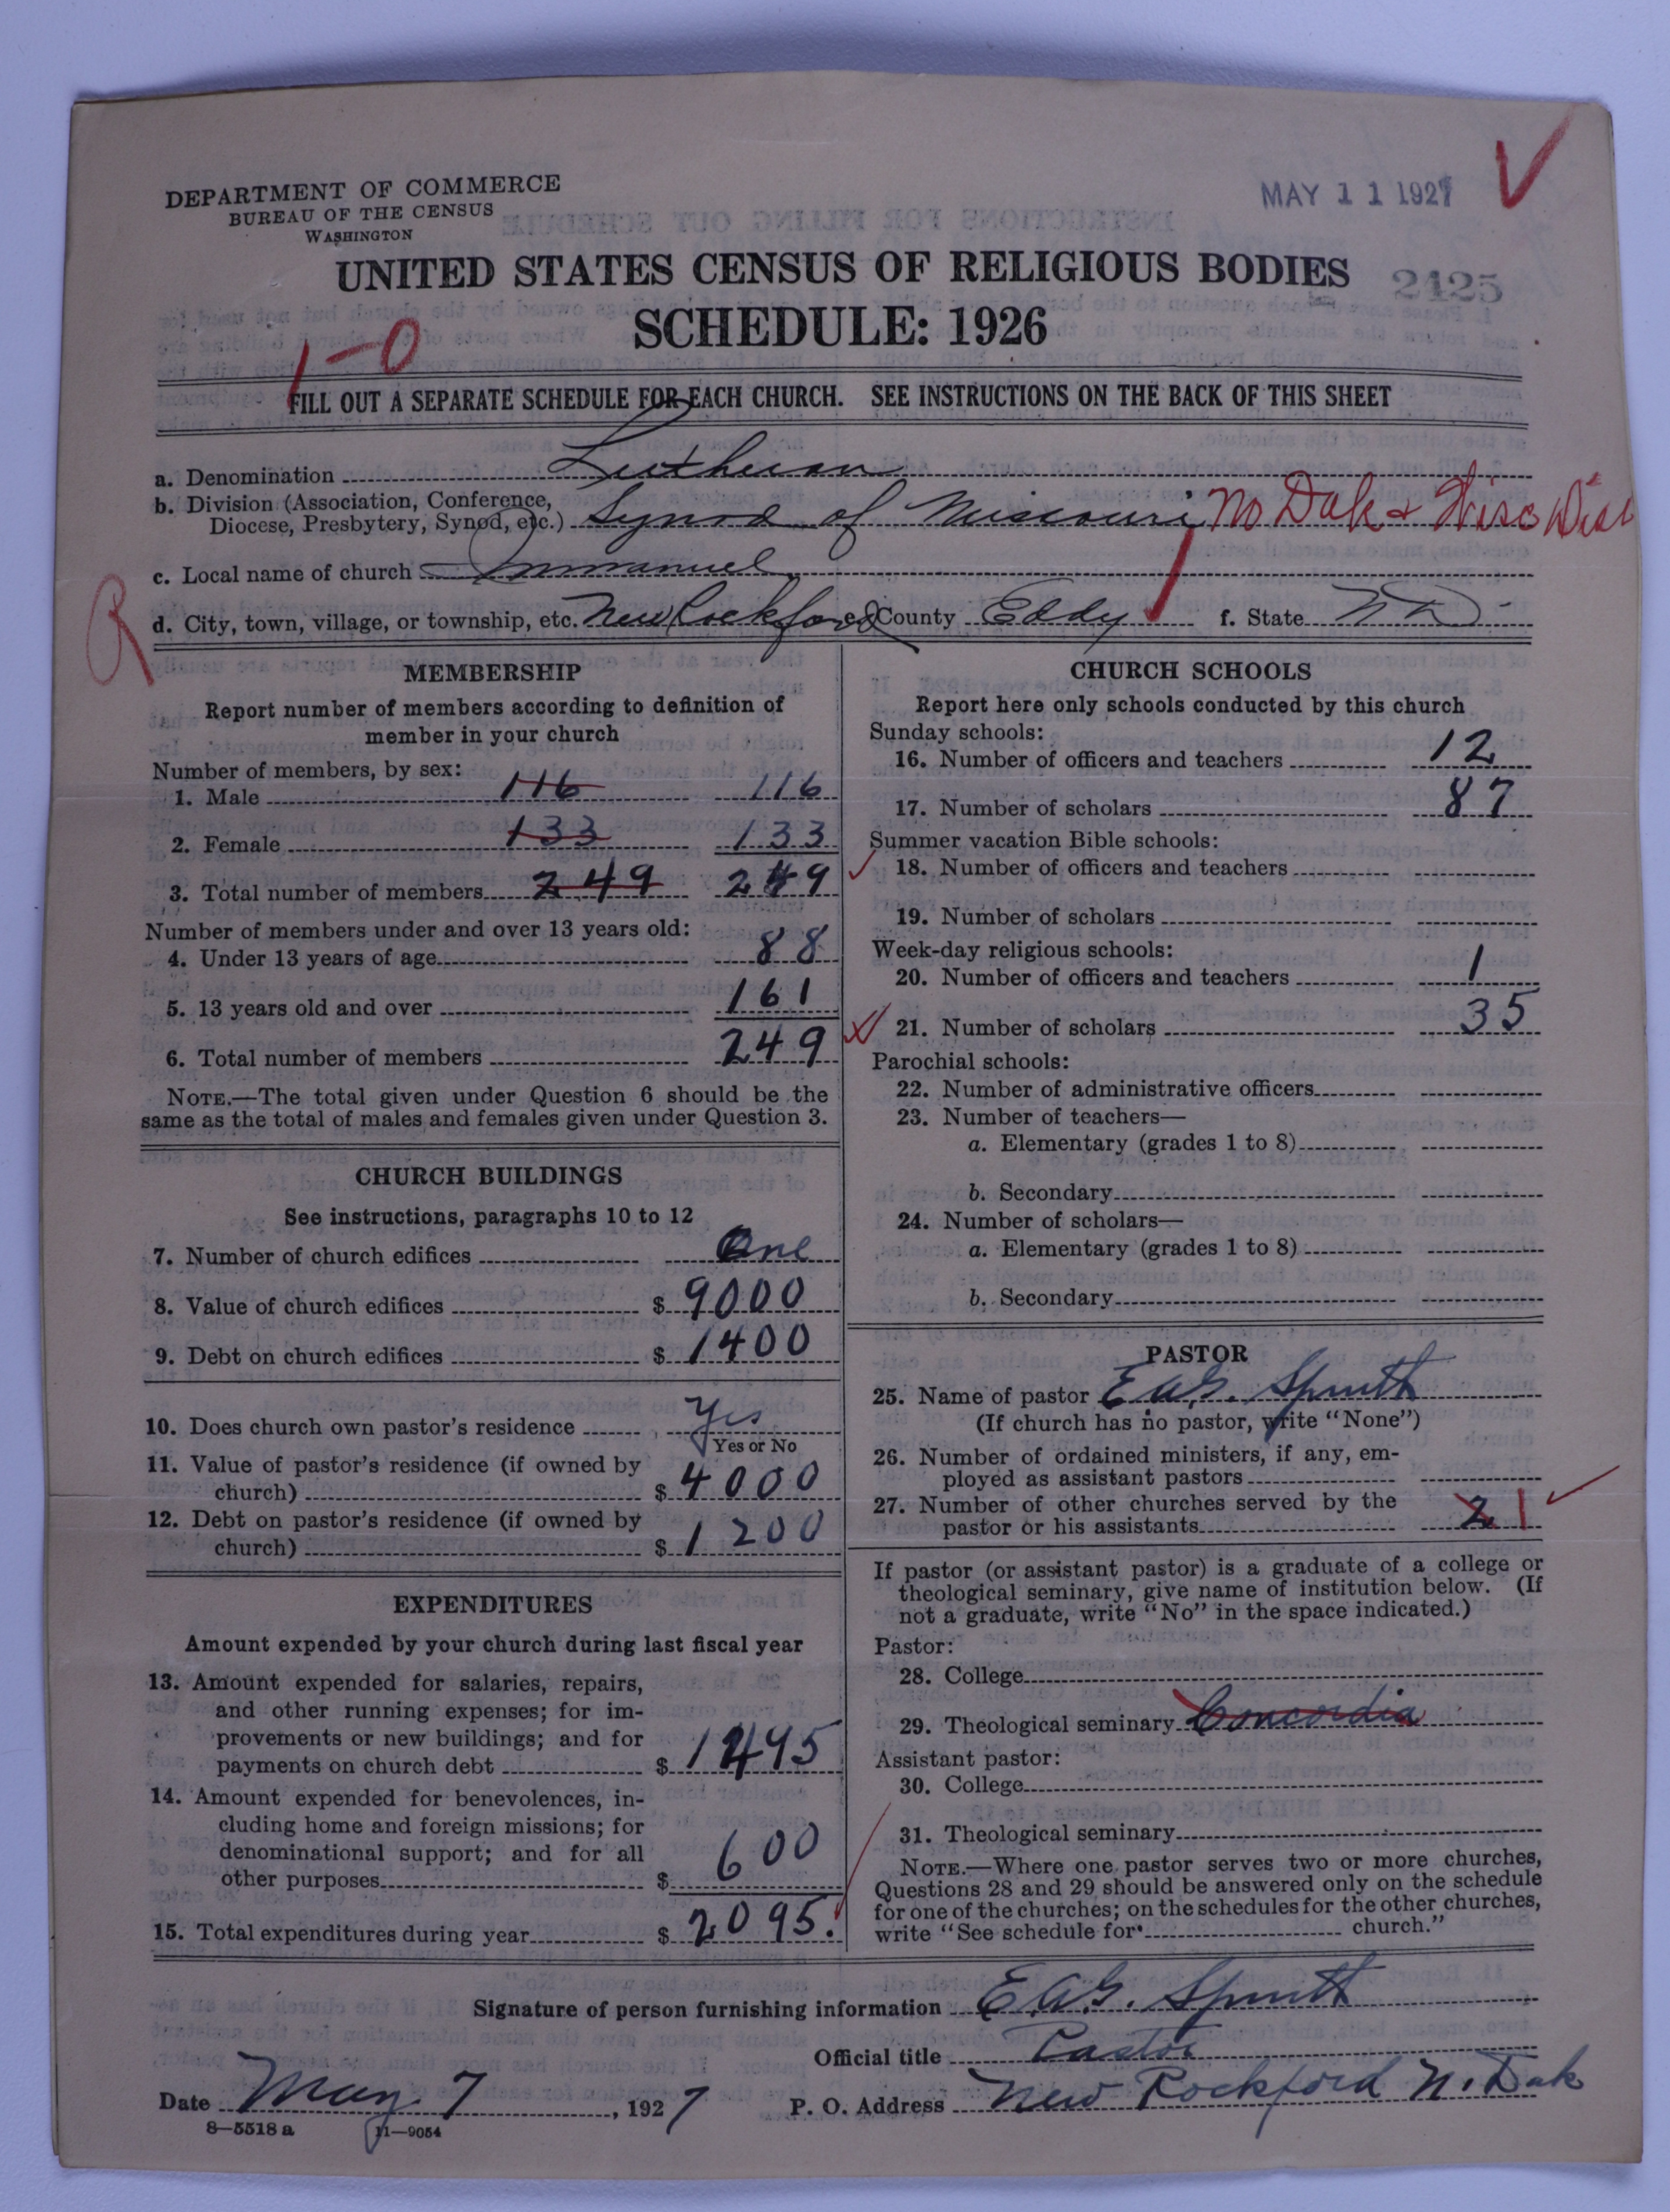 DEPARTMENT OF COMMERCE
BUREAU OF THE CENSUS
WASHINGTON
MAY 11 1927
UNITED STATES CENSUS OF RELIGIOUS BODIES
2425
SCHEDULE: 1926
1-0
FILL OUT A SEPARATE SCHEDULE FOR EACH CHURCH. SEE INSTRUCTIONS ON THE BACK OF THIS SHEET
a. Denomination Lutheran
b. Division (Association, Conference,
Diocese, Presbytery, Synod, etc.) Synod of Missouri No Dak & Wisc Dist
c. Local name of church Immanuel
R
d. City, town, village, or township, etc. New Rockford e. County Eddy f. State N D
MEMBERSHIP
Report number of members according to definition of
member in your church
Number of members, by sex:
1. Male 116 116
2. Female 133 133
3. Total number of members 249 249
Number of members under and over 13 years old:
4. Under 13 years of age 88
5. 13 years old and over 161
6. Total number of members 249
NOTE.—The total given under Question 6 should be the
same as the total of males and females given under Question 3.
CHURCH BUILDINGS
See instructions, paragraphs 10 to 12
7. Number of church edifices One
8. Value of church edifices $ 9000
9. Debt on church edifices $ 1400
10. Does church own pastor's residence Yes
Yes or No
11. Value of pastor's residence (if owned by
church) $ 4000
12. Debt on pastor's residence (if owned by
church) $ 1200
EXPENDITURES
Amount expended by your church during last fiscal year
13. Amount expended for salaries, repairs,
and other running expenses; for im-
provements or new buildings; and for
payments on church debt $ 1495
14. Amount expended for benevolences, in-
cluding home and foreign missions; for
denominational support; and for all
other purposes $ 600
15. Total expenditures during year $ 2095.
CHURCH SCHOOLS
Report here only schools conducted by this church
Sunday schools:
16. Number of officers and teachers 12
17. Number of scholars 87
Summer vacation Bible schools:
18. Number of officers and teachers
19. Number of scholars
Week-day religious schools:
20. Number of officers and teachers 1
21. Number of scholars 35
Parochial schools:
22. Number of administrative officers
23. Number of teachers—
a. Elementary (grades 1 to 8)
b. Secondary
24. Number of scholars—
a. Elementary (grades 1 to 8)
b. Secondary
PASTOR
25. Name of pastor E A G. Spruth
(If church has no pastor, write "None")
26. Number of ordained ministers, if any, em-
ployed as assistant pastors
27. Number of other churches served by the
pastor or his assistants 2 1
If pastor (or assistant pastor) is a graduate of a college or
theological seminary, give name of institution below. (If
not a graduate, write "No" in the space indicated.)
Pastor:
28. College
29. Theological seminary Concordia
Assistant pastor:
30. College
31. Theological seminary
NOTE.—Where one pastor serves two or more churches,
Questions 28 and 29 should be answered only on the schedule
for one of the churches; on the schedules for the other churches,
write "See schedule for church."
Signature of person furnishing information E. A. G. Spruth
Official title Pastor
Date May 7, 1927 P. O. Address New Rockford N. Dak
8—5518 a 11—9054